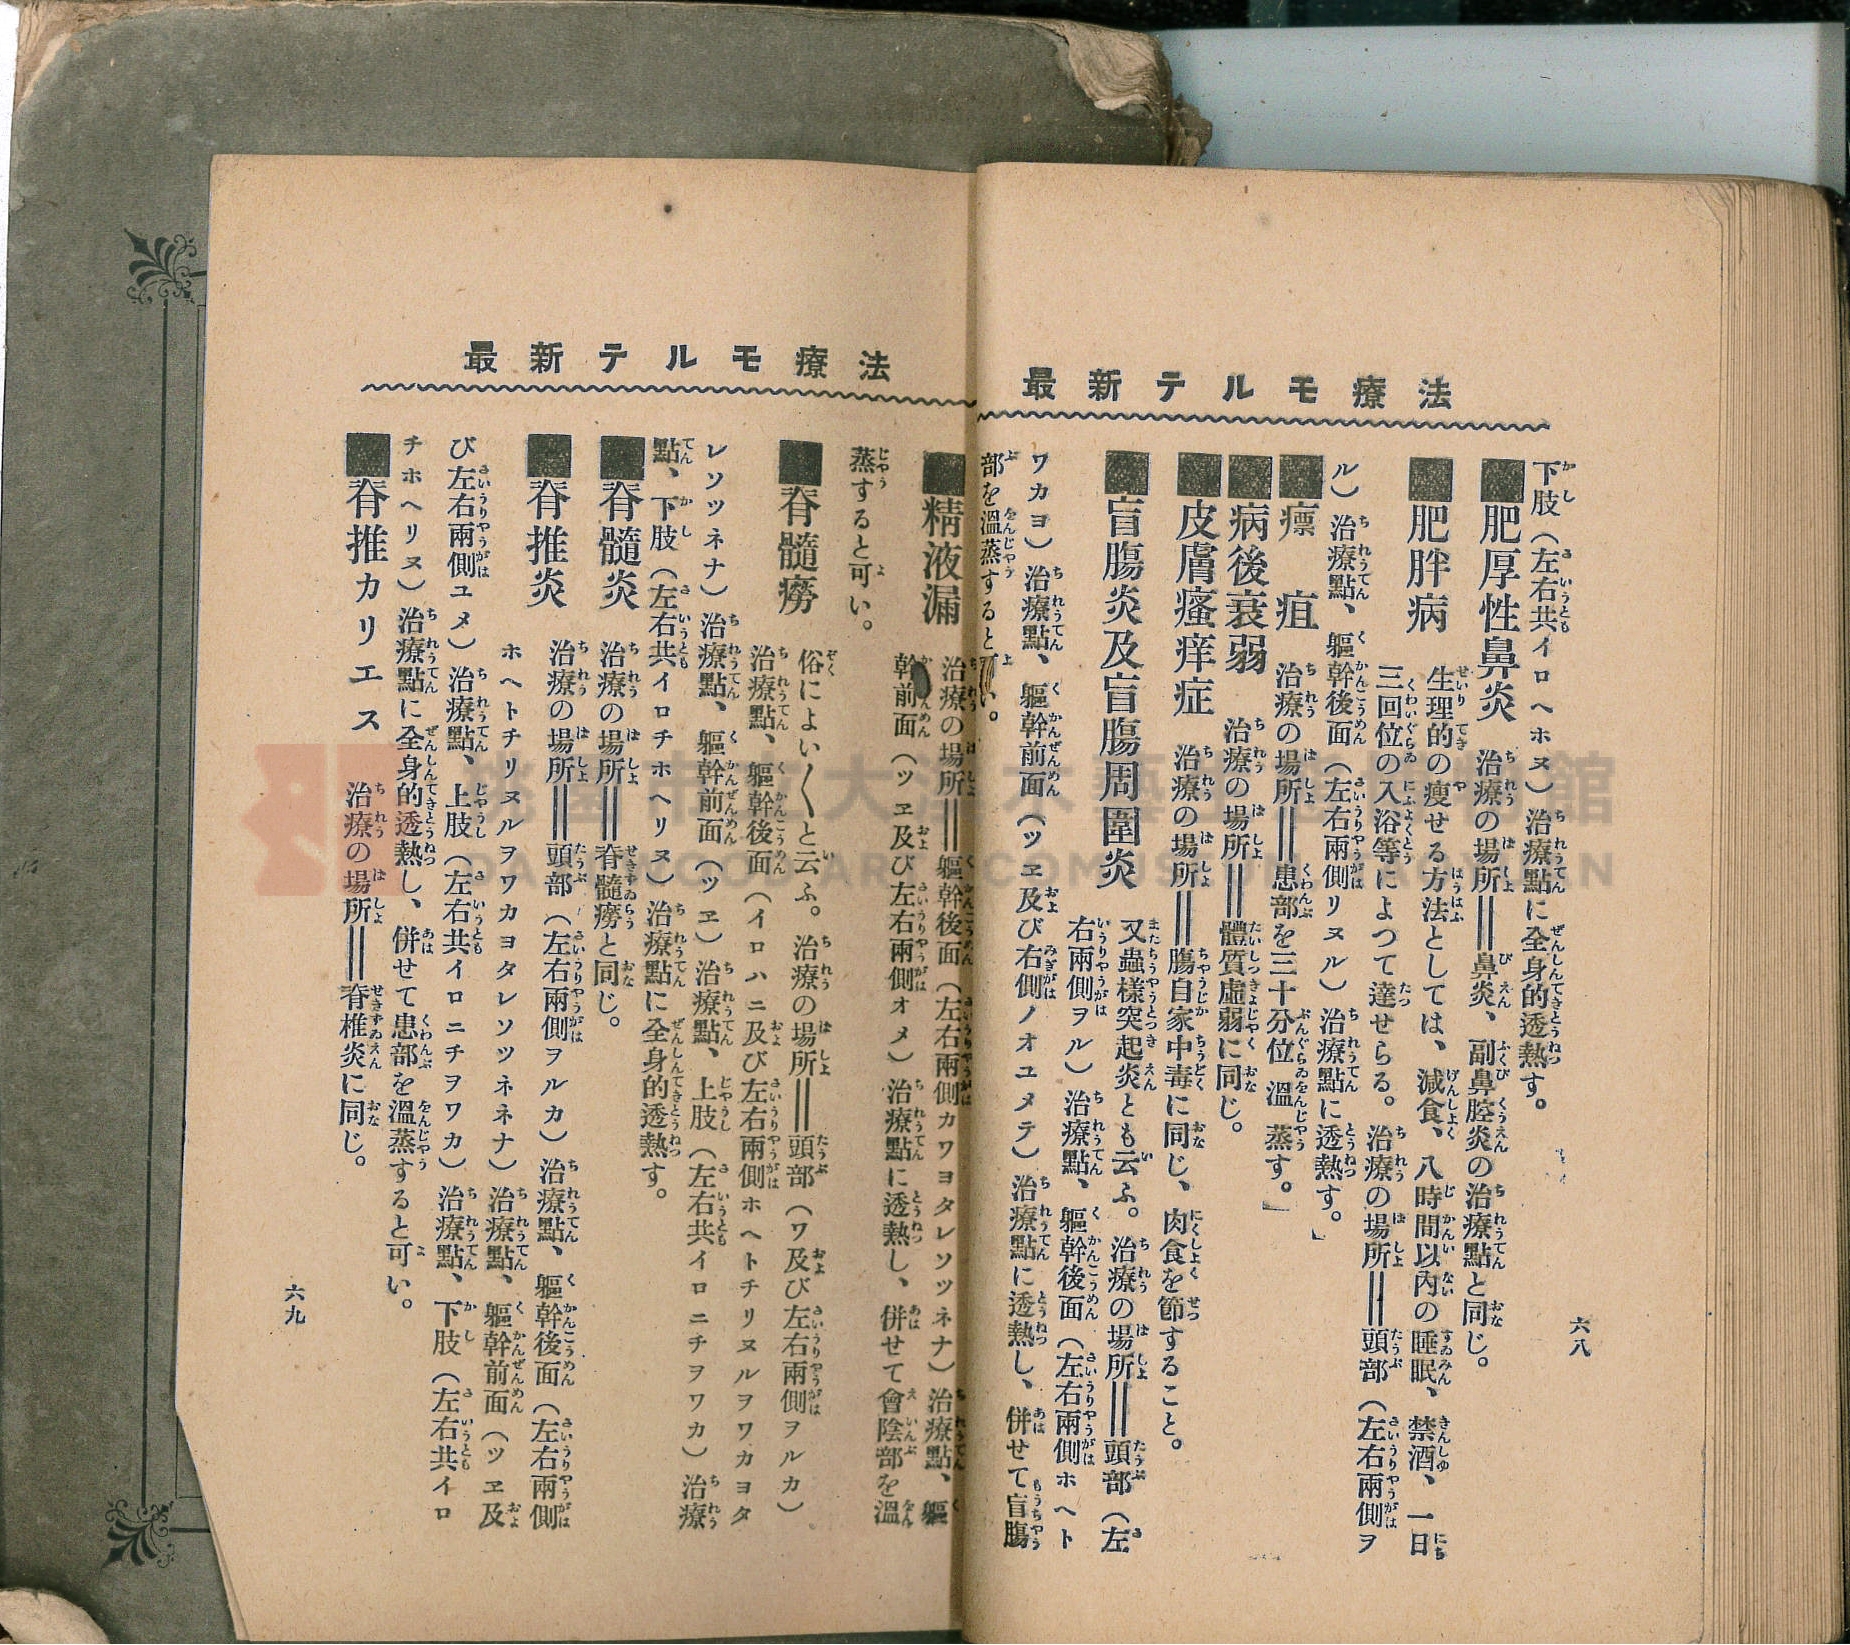 最新テルモ療法
下肢（左右共イロヘホヌ）治療點に全身的透熱す。
■肥厚性鼻炎　治療の場所‖鼻炎、副鼻腔炎の治療點と同じ。
■肥胖病　生理的の痩せる方法としては、減食、八時間以内の睡眠、禁酒、一日
三回位の入浴等によつて達せらる。治療の場所‖頭部（左右兩側ヲ
ル）治療點、軀幹後面（左右兩側リヌル）治療點に透熱す。」
■瘭疽　治療の場所‖患部を三十分位溫蒸す。」
■病後衰弱　治療の場所‖體質虛弱に同じ。
■皮膚瘙痒症　治療の場所‖膓自家中毒に同じ、肉食を節すること。
■盲膓炎及盲膓周圍炎　又蟲樣突起炎とも云ふ。治療の場所‖頭部（左
右兩側ヲル）治療點、軀幹後面（左右兩側ホヘト
ワカヨ）治療點、軀幹前面（ツヱ及び右側ノオユメテ）治療點に透熱し、併せて盲膓
部を溫蒸すると可い。
六八
最新テルモ療法
■精液漏　治療の場所‖軀幹後面（左右兩側カワヨタレソツネナ）治療點、軀
幹前面（ツヱ及び左右兩側オメ）治療點に透熱し、併せて會陰部を溫
蒸すると可い。
■脊髓癆　俗によい〱と云ふ。治療の場所‖頭部（ワ及び左右兩側ヲルカ）
治療點、軀幹後面（イロハニ及び左右兩側ホヘトチリヌルヲワカヨタ
レソツネナ）治療點、軀幹前面（ツヱ）治療點、上肢（左右共イロニチヲワカ）治療
點、下肢（左右共イロチホヘリヌ）治療點に全身的透熱す。
■脊髓炎　治療の場所‖脊髓癆と同じ。
■脊推炎　治療の場所‖頭部（左右兩側ヲルカ）治療點、軀幹後面（左右兩側
ホヘトチリヌルヲワカヨタレソツネネナ）治療點、軀幹前面（ツヱ及
び左右兩側ユメ）治療點、上肢（左右共イロニチヲワカ）治療點、下肢（左右共イロ
チホヘリヌ）治療點に全身的透熱し、併せて患部を溫蒸すると可い。
■脊推カリエス　治療の場所‖脊椎炎に同じ。
六九